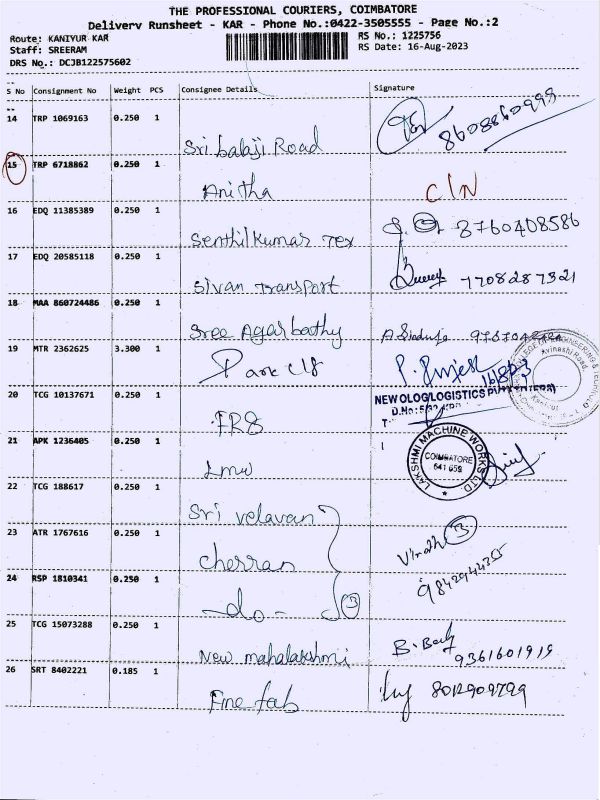 THE PROFESSIONAL COURIERS, COIMBATORE
Delivery Runsheet - KAR - Phone No.:0422-3505555 - Page No.:2
Route: KANIYUR KAR RS No.: 1225756
Staff: SREERAM RS Date: 16-Aug-2023
DRS No.: DCJB122575602
S No Consignment No Weight PCS Consignee Details Signature
14 TRP 1069163 0.250 1 Sri balaji Road 8608860998
15 TRP 6718862 0.250 1 Anitha C/N
16 EDQ 11385389 0.250 1 Senthilkumar Tex 8760408586
17 EDQ 20585118 0.250 1 Sivan Transport 7708287321
18 MAA 860724486 0.250 1 Sree Agarbathy
19 MTR 2362625 3.300 1 Park clg
NEWOLOGLOGISTICS
20 TCG 10137671 0.250 1 FRS
21 APK 1236405 0.250 1 Lmw
LAKSHMI MACHINE WORKS LTD.
COIMBATORE
641 659
22 TCG 188617 0.250 1 Sri velavan
23 ATR 1767616 0.250 1 cherran 3
24 RSP 1810341 0.250 1 -do- 3
25 TCG 15073288 0.250 1 New mahalakshmi 9361601919
26 SRT 8402221 0.185 1 Fine fab 8012909799